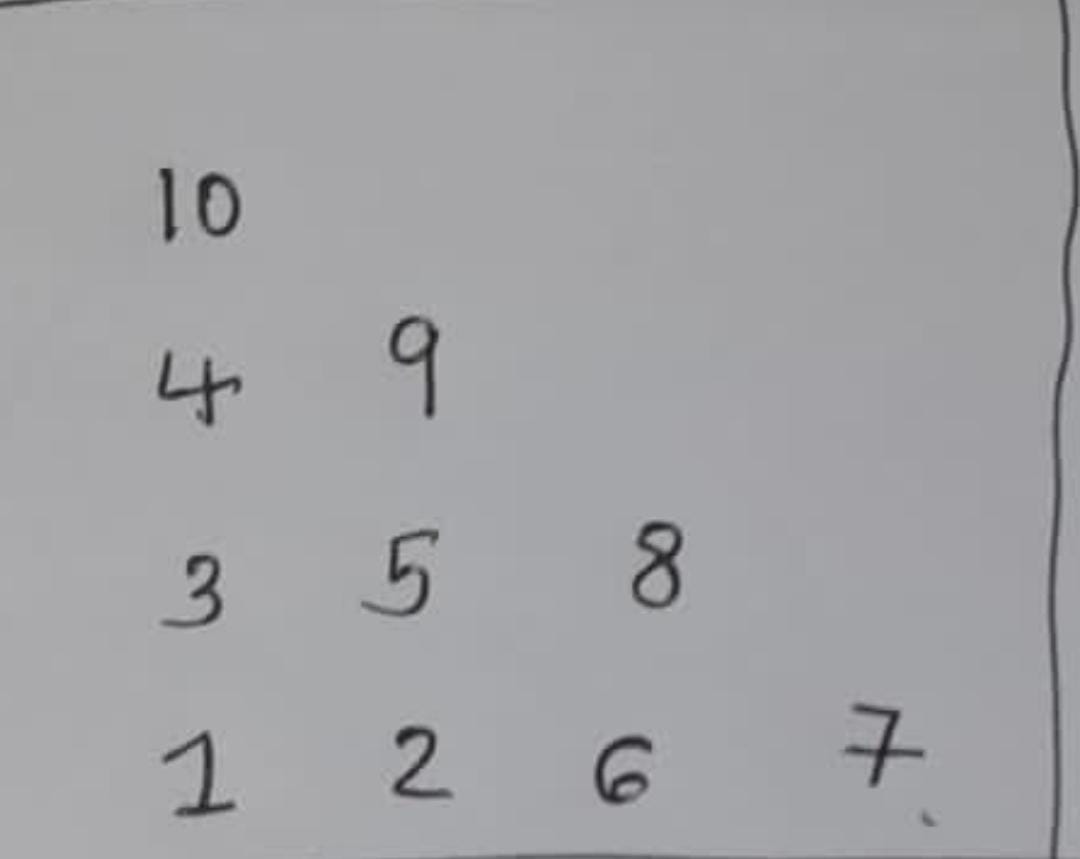 10
4 9
3 5 8
1 2 6 7.